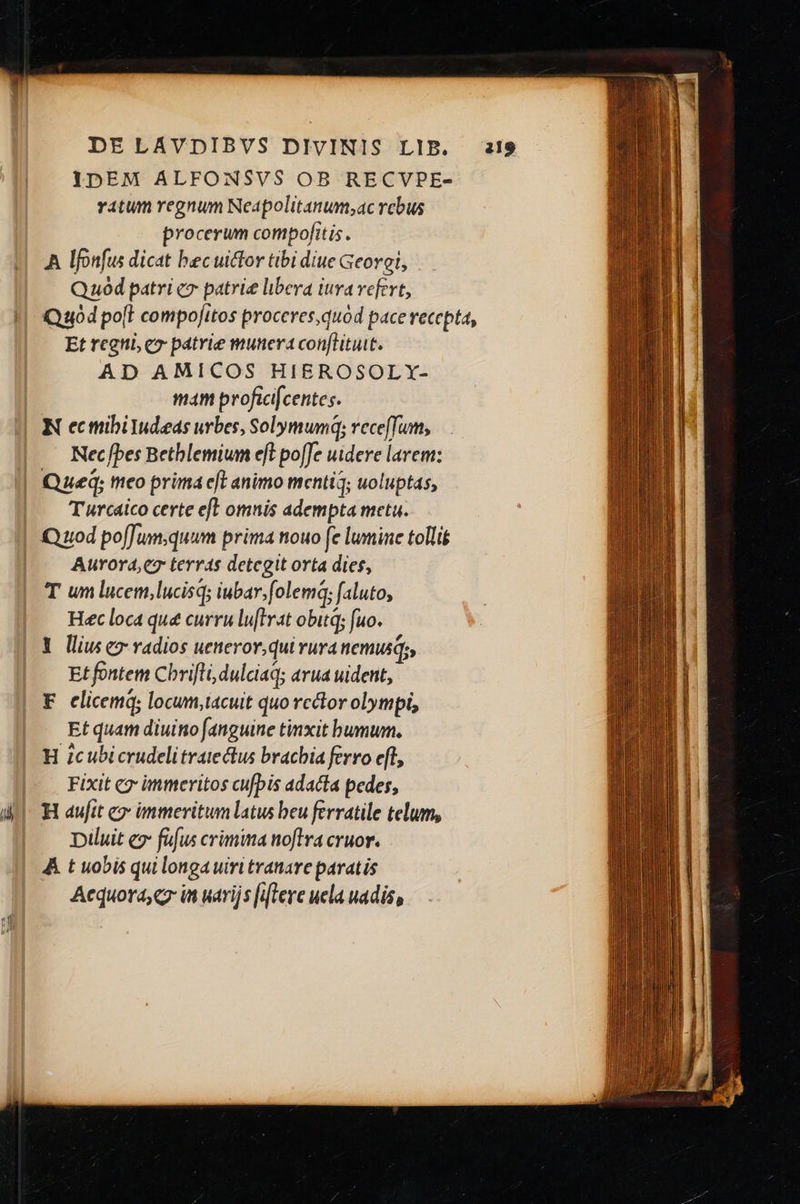 DE LAVDIBVS DIVINIS LIB. 219
IDEM ALFONSVS OB RECVPE-
ratum regnum Neapolitanum,ac rebus
procerum compoſitis.
A lfonſus dicat hæc uictor tibi diue Georgi,
Quòd patri & patriæ libera iura refert,
Quòd poſt compoſitos proceres,quòd pace recepta,
Et regni, & patriæ munera conſtituit.
AD AMICOS HIEROSOLY-
mam proficiſcentes.
N ec mihi Iudæas urbes, Solymumq́; receſſum,
Nec ſpes Bethlemium eſt poſſe uidere larem:
Quæq́; meo prima eſt animo mentiq́; uoluptas,
Turcaico certe eſt omnis adempta metu.
Quod poſſum,quum prima nouo ſe lumine tollit
Aurora,& terras detegit orta dies,
T um lucem,lucisq́; iubar,ſolemq́; ſaluto,
Hæc loca quæ curru luſtrat obitq́; ſuo.
I llius & radios ueneror,qui rura nemusq́;,
Et fontem Chriſti,dulciaq́; arua uident,
F elicemq́; locum,iacuit quo rector olympi,
Et quam diuino ſanguine tinxit humum.
H ic ubi crudeli traiectus brachia ferro eſt,
Fixit & immeritos cuſpis adacta pedes,
H auſit & immeritum latus heu ferratile telum,
Diluit & fuſus crimina noſtra cruor.
A t uobis qui longa uiri tranare paratis
Aequora,& in uarijs ſiſtere uela uadis,